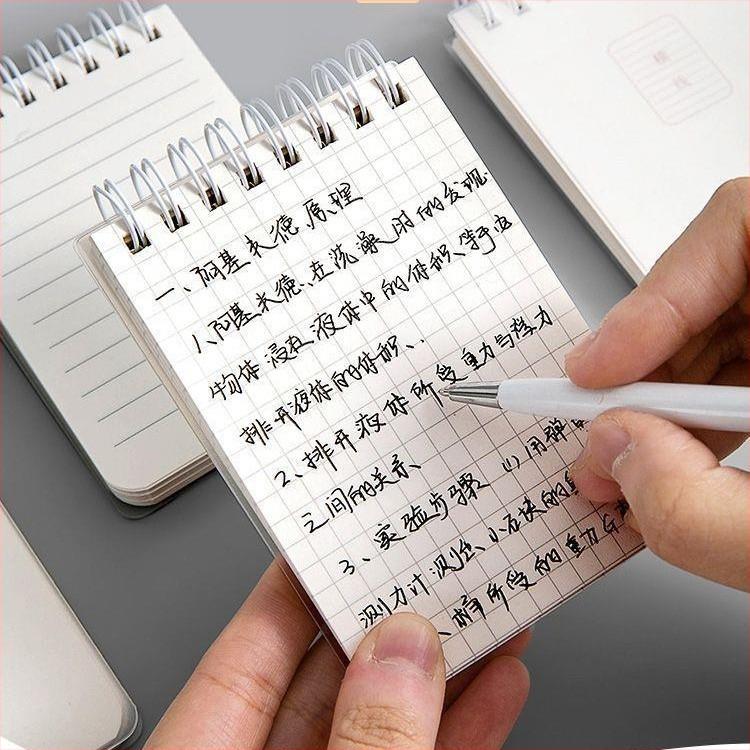 一、阿基米德原理
1、阿基米德、在洗澡时的发现
物体浸在液体中的体积等于
排开液体的体积、
2、排开液体所受重力与浮力
之间的关系
3、实验步骤 (1)用弹
测力计测 小石块的
桶所受的重力